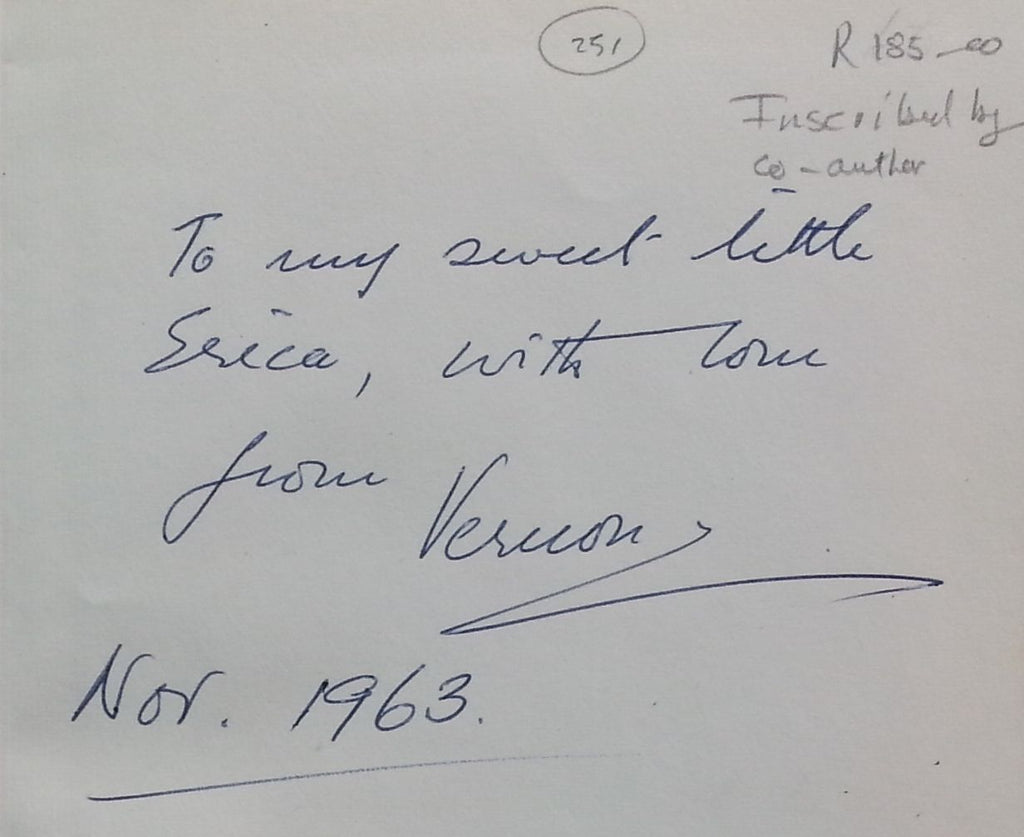 251
R 185-00
Inscribed by
co-author
To my sweet little
Erica, with love
from Vernon
Nov. 1963.